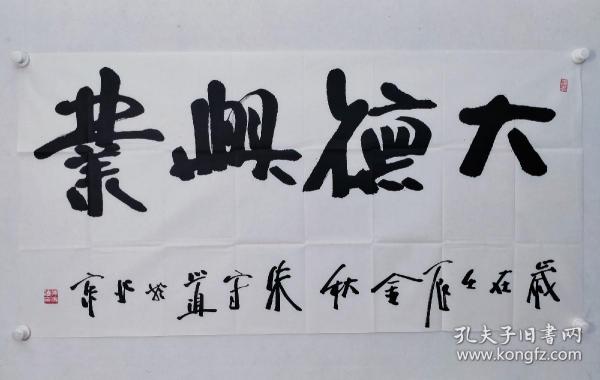 大德興業
歲在壬辰金秋朱守道於北京
孔夫子旧书网
www.kongfz.com